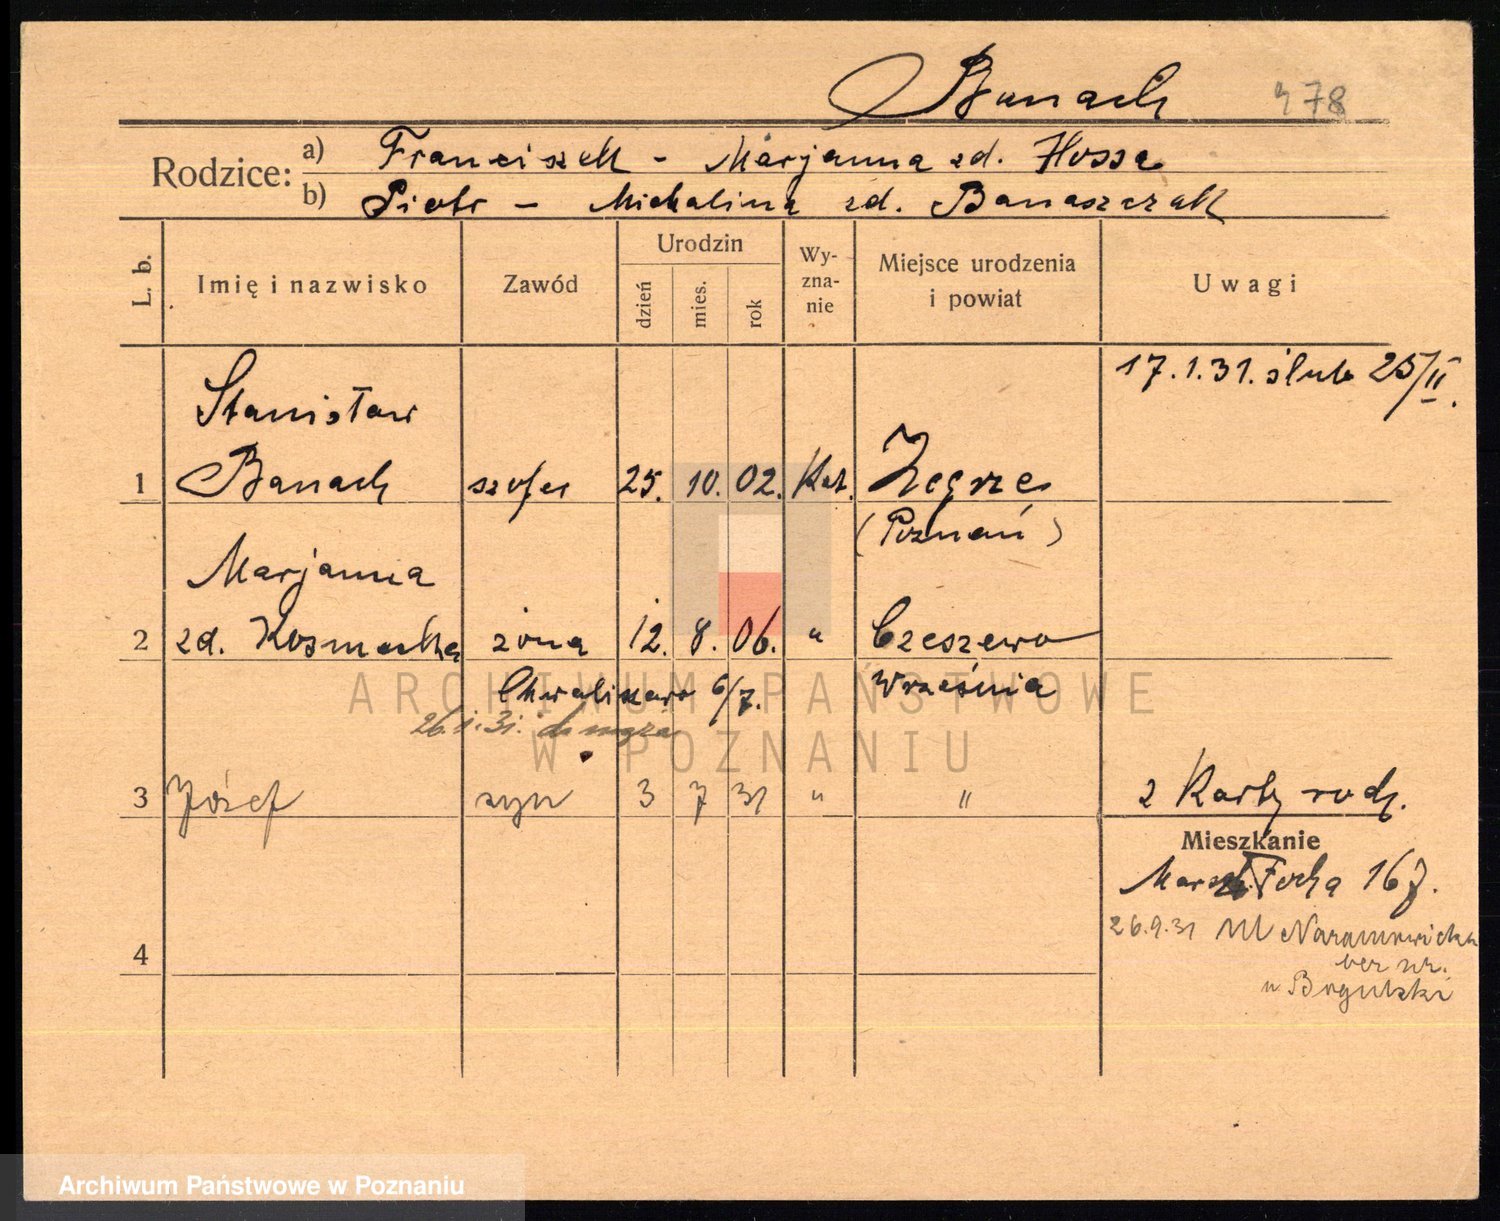 Banach 478
Rodzice: a) Franciszek - Marjanna zd. Hossa
b) Piotr - Michalina zd. Banaszczak
L. b. Imię i nazwisko Zawód Urodzin dzień mies. rok Wy-zna-nie Miejsce urodzenia i powiat Uwagi
17.1.31. ślub 25/II.
Stanisław
1 Banach szofer 25. 10. 02. Kat. Żegrze
(Poznań)
Marjanna
2 zd. Kosmacka żona 12. 8. 06. " Czeszewo
Września
6/7.
26.1.31. do męża
3 Józef syn 3 7 31 " " z Karty rodz.
Mieszkanie
Marsz. Focha 167.
26.9.31 Ul Naramowicka
4
bez nr.
u
ARCHIWUM PAŃSTWOWE
W POZNANIU
Archiwum Państwowe w Poznaniu